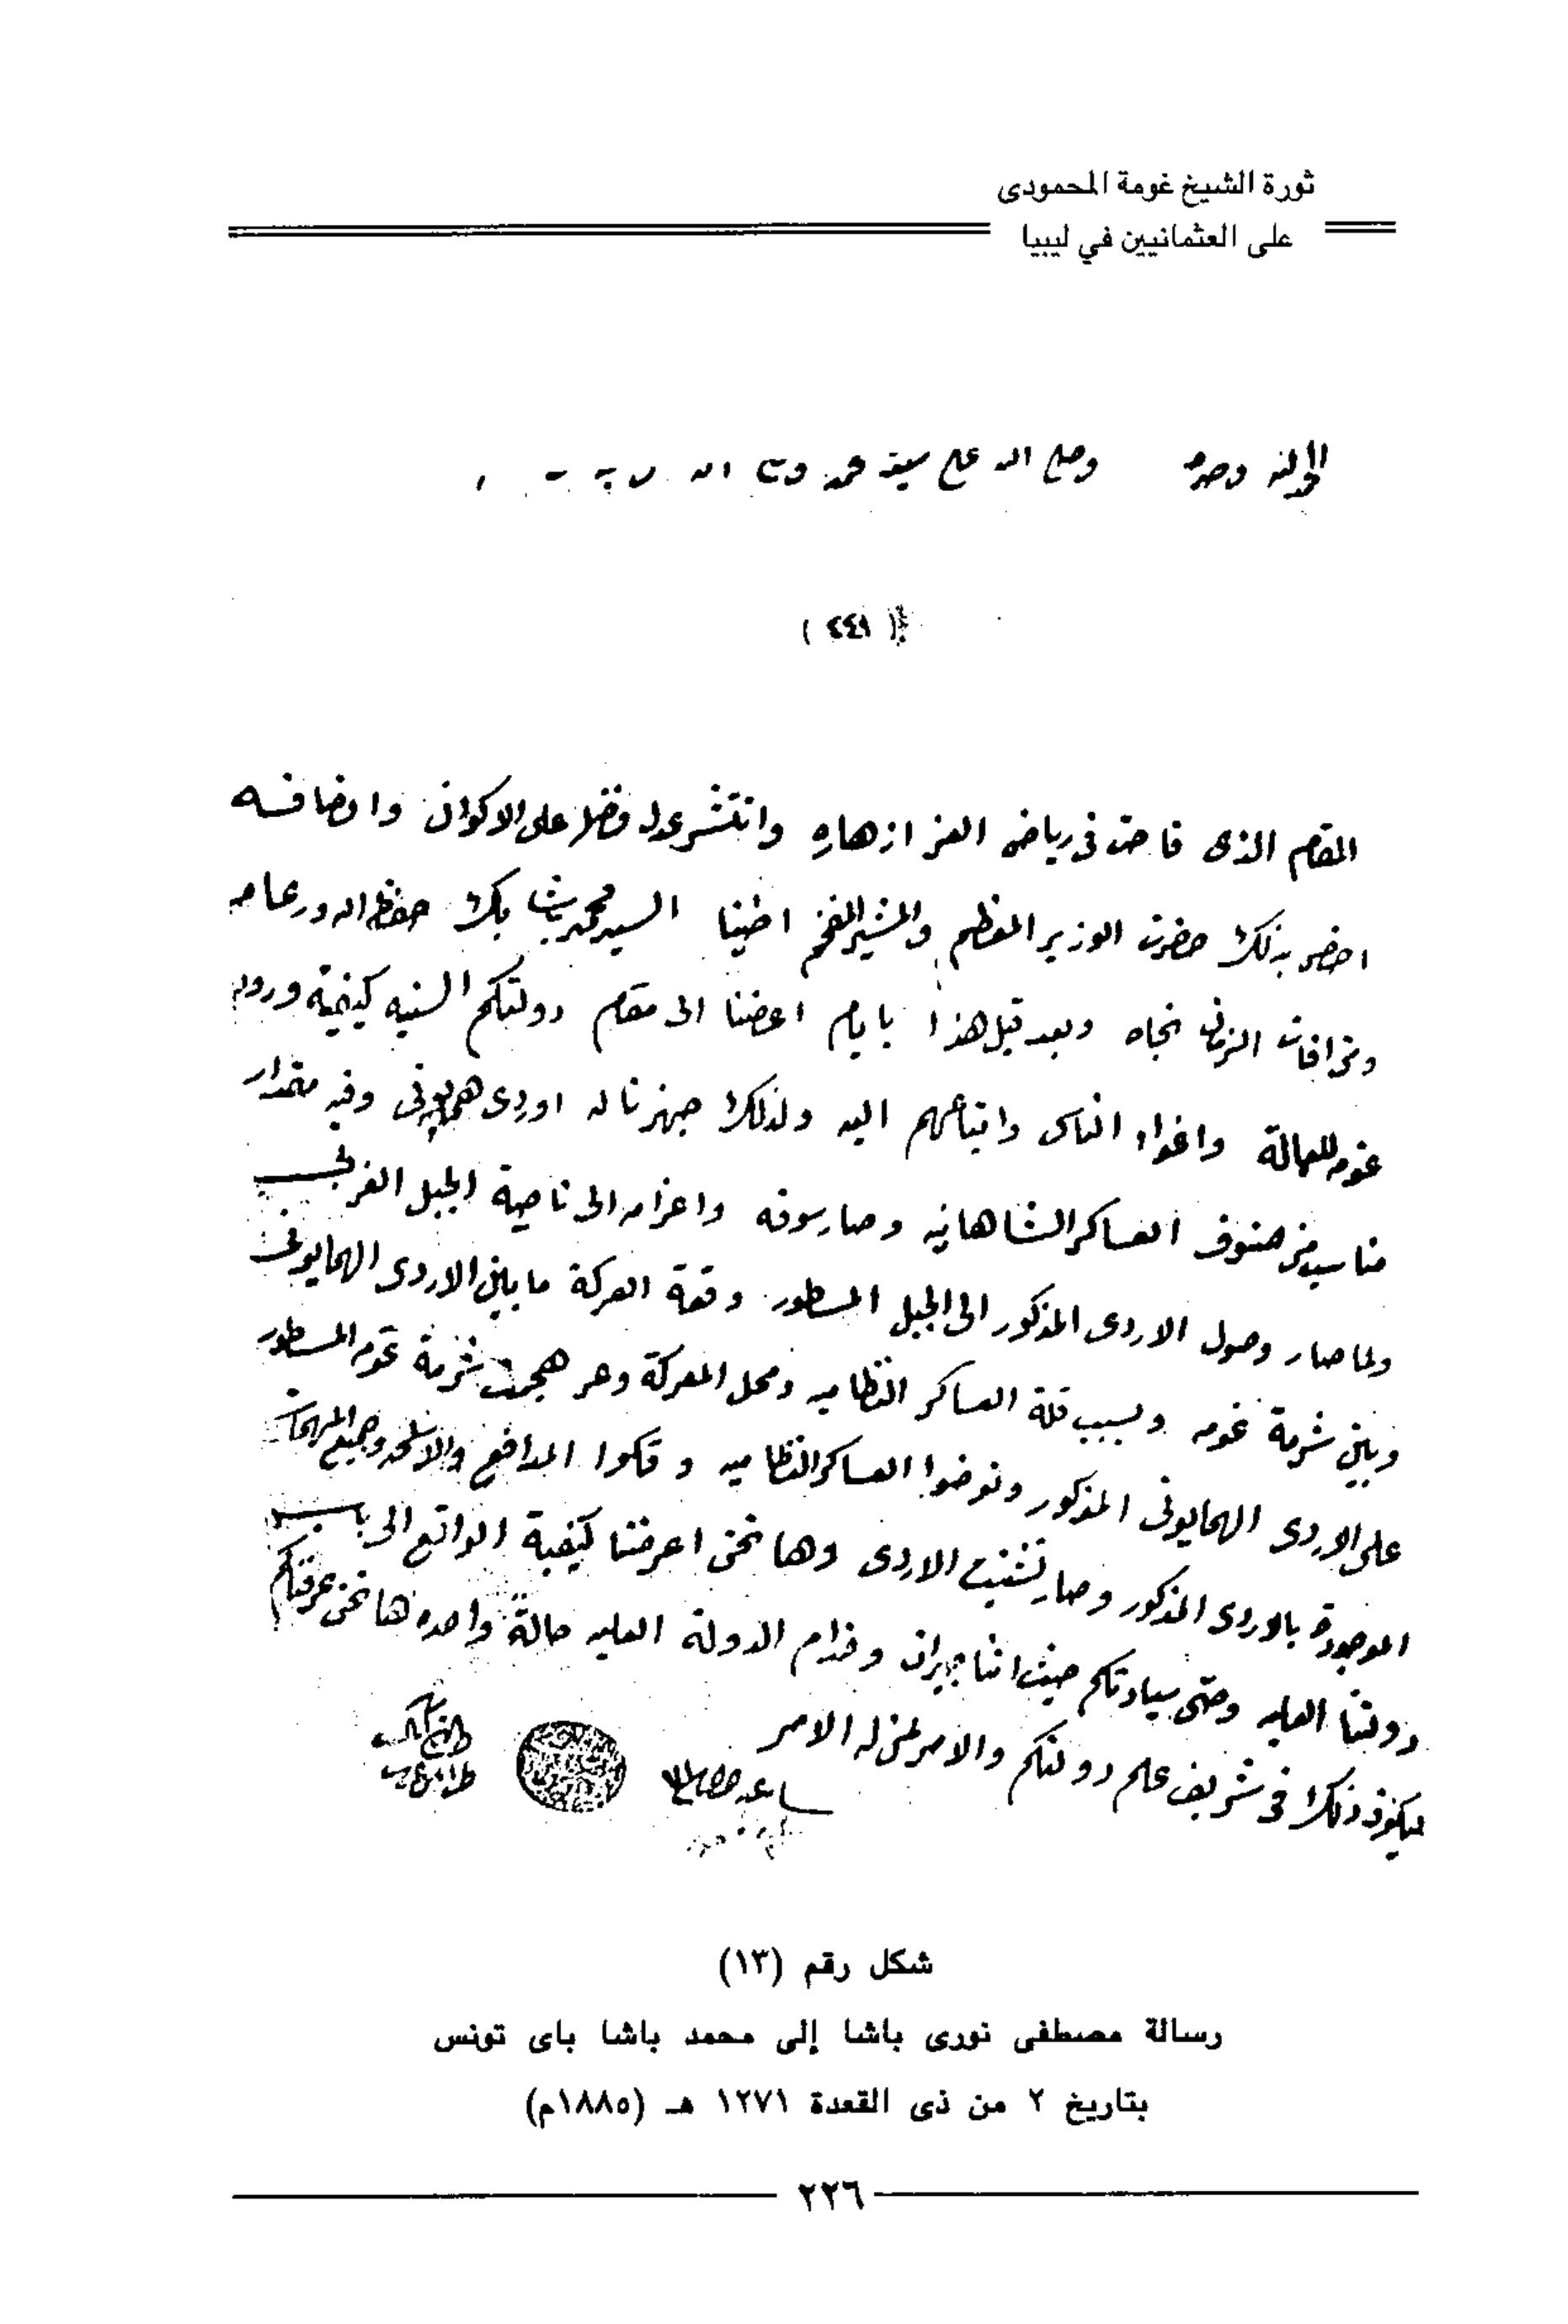 ثورة الشيخ غومة المحمودى
على العثمانيين في ليبيا
الحمد لله وحده وصلى الله على سيدنا محمد
( ٤٤٩ )
المقام الذى فاحت فى رياض العز ازهاره وانتشر عدله وفضله على الاكوان
اخص بذلك حضرت الوزير المعظم والمشير المفخم اخينا السيد محمد باشا بك حفظه الله ورعاه
الزمان نجاه وبعد قبل هذا بايام اعرضنا الى مقام دولتكم السنيه كيفية ورود
غومه للعمالة واغواء الناس واتباعهم اليه ولذلك جهزنا له اوردى همايونى وفيه مقدار
مناسب من صنوف العساكر الشاهانيه وصار سوقه واعزامه الى ناحية الجبل الغربى
ولما صار وصول الاردى المذكور الى الجبل المسطور وقعة العركة ما بين الاردى الهمايونى
وبين شرمة غومه وبسبب قلة العساكر النظاميه ومحل المعركة وعر هجمت شرمة غومه المسطور
على الاردى الهمايونى المذكور العساكر النظاميه وفكوا المدافع والاسلحه وجميع المهمات
الموجودة بالاردى المذكور وصار تشتيت الاردى وها نحن اعرضنا كيفية الواقع الى باب
دولتنا العليه وحتى سيادتكم حيث اننا جيران وخدام الدولة العليه حالة واحده ها نحن عرفناكم
ليكون ذلك فى شريف علم دولتكم والامر لمن له الامر
شكل رقم (١٣)
رسالة مصطفى نورى باشا إلى محمد باشا باى تونس
بتاريخ ٢ من ذى القعدة ١٢٧١ هـ (١٨٨٥م)
٢٢٦